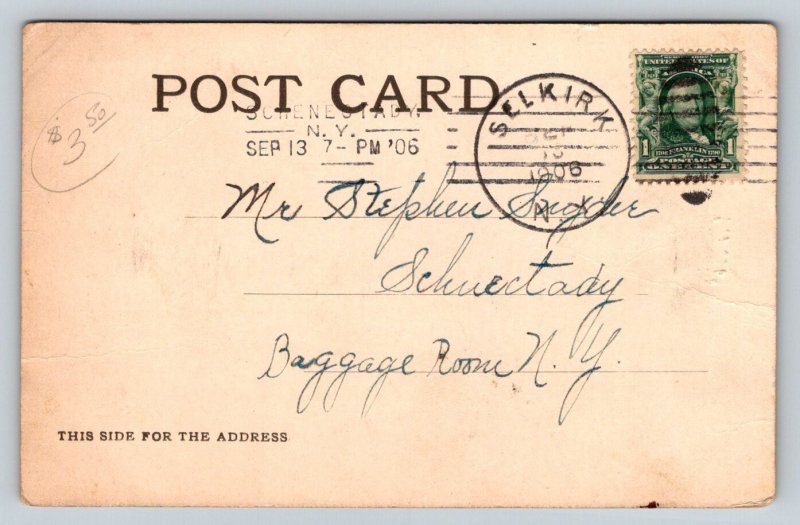 POST CARD
$ 3 50
SCHENECTADY,
N. Y.
SEP 13 7 - PM '06
SELKIRK
SEP
13
1906
N. Y.
UNITED STATES OF
AMERICA
1 1706 FRANKLIN 1790 1
POSTAGE
ONE CENT
Mr Stephen Snyder
Schnectady
Baggage Room N. Y.
THIS SIDE FOR THE ADDRESS